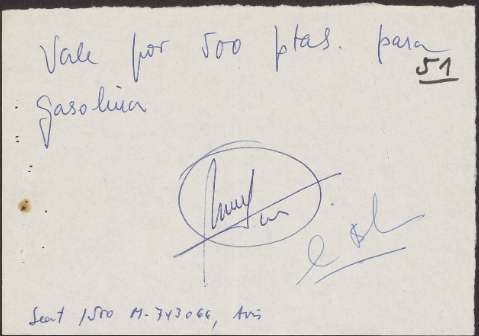 Vale por 500 ptas. para
51
gasolina
Seat 1500 M-743066, Avis